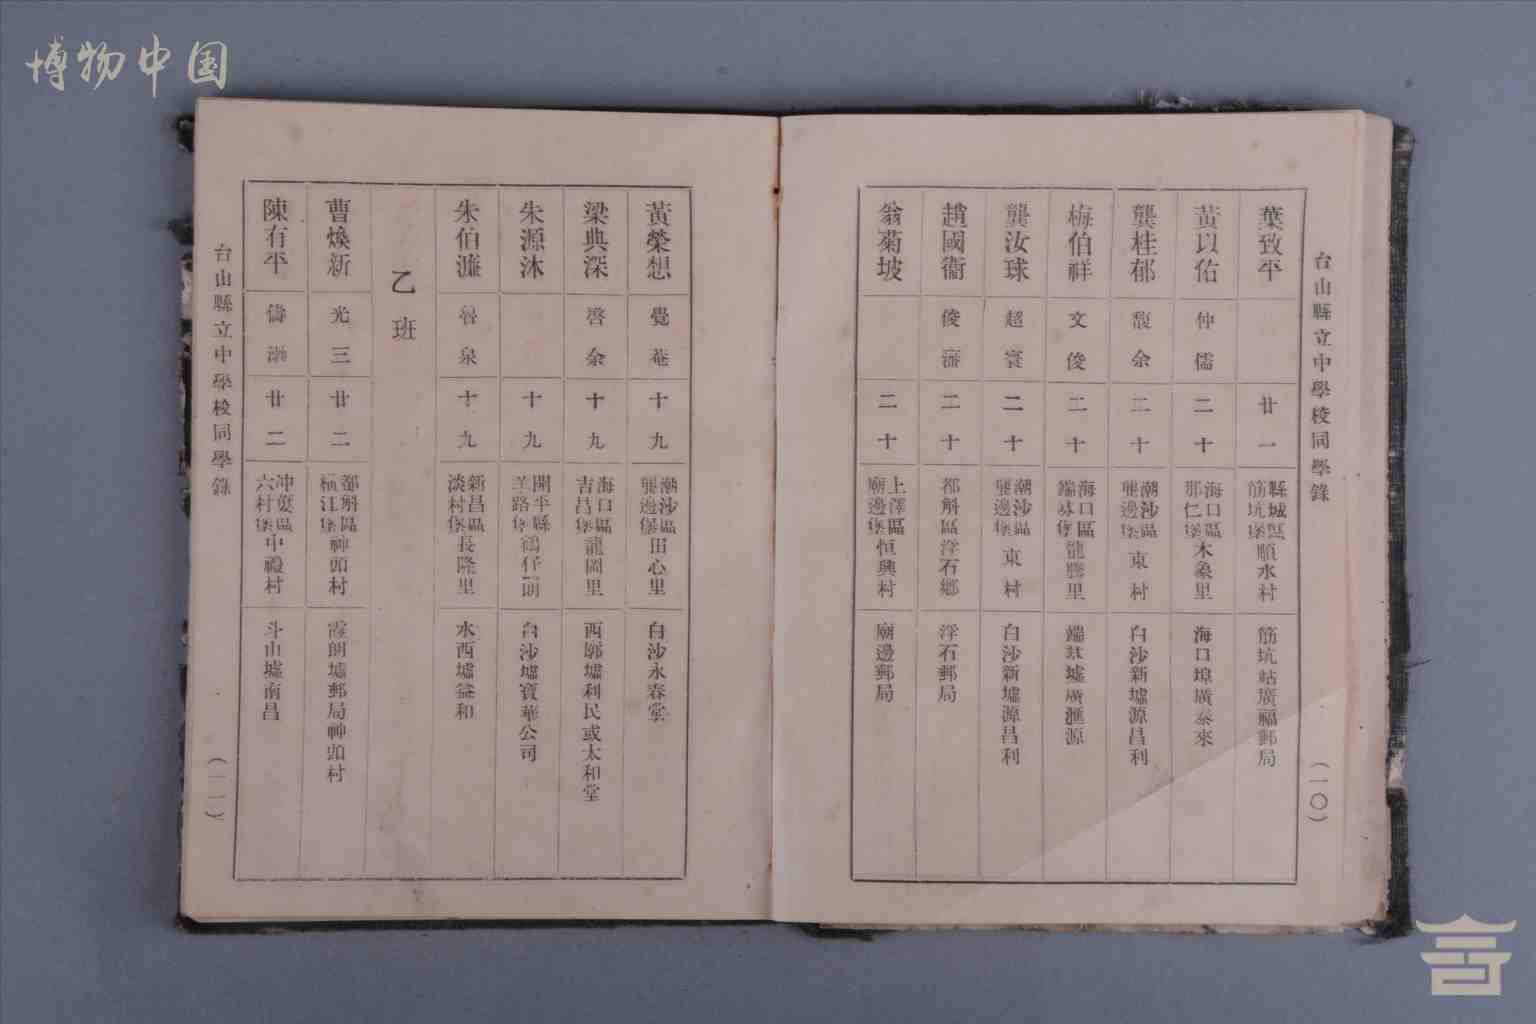 博物中国
台山縣立中學校同學錄
(一〇)
葉致平
廿一
縣城區
筋坑堡
順水村
筋坑站廣福郵局
黃以佑
仲儒
二十
海口區
那仁堡
木象里
海口埠廣泰來
龔桂郁
馥余
二十
潮沙區
龔邊堡
東村
白沙新墟源昌利
梅伯祥
文俊
二十
海口區
端芬堡
龍騰里
端芬墟廣滙源
龔汝球
超寰
二十
潮沙區
龔邊堡
東村
白沙新墟源昌利
趙國衞
俊藩
二十
都斛區浮石鄉
浮石郵局
翁菊坡
二十
上澤區
廟邊堡
恒興村
廟邊郵局
黃榮想
覺菴
十九
潮沙區
龔邊堡
田心里
白沙永春堂
梁典深
啓余
十九
海口區
吉昌堡
龍岡里
西廓墟利民或太和堂
朱源沐
十九
開平縣
羊路堡
鶴仔前
白沙墟寶華公司
朱伯濂
魯泉
十九
新昌區
淡村堡
長隆里
水西墟益和
乙班
曹煥新
光三
廿二
都斛區
横江堡
神頭村
霞朗墟郵局神頭村
陳有平
儔
廿二
冲蔞區
六村堡
中禮村
斗山墟南昌
台山縣立中學校同學錄
(一一)